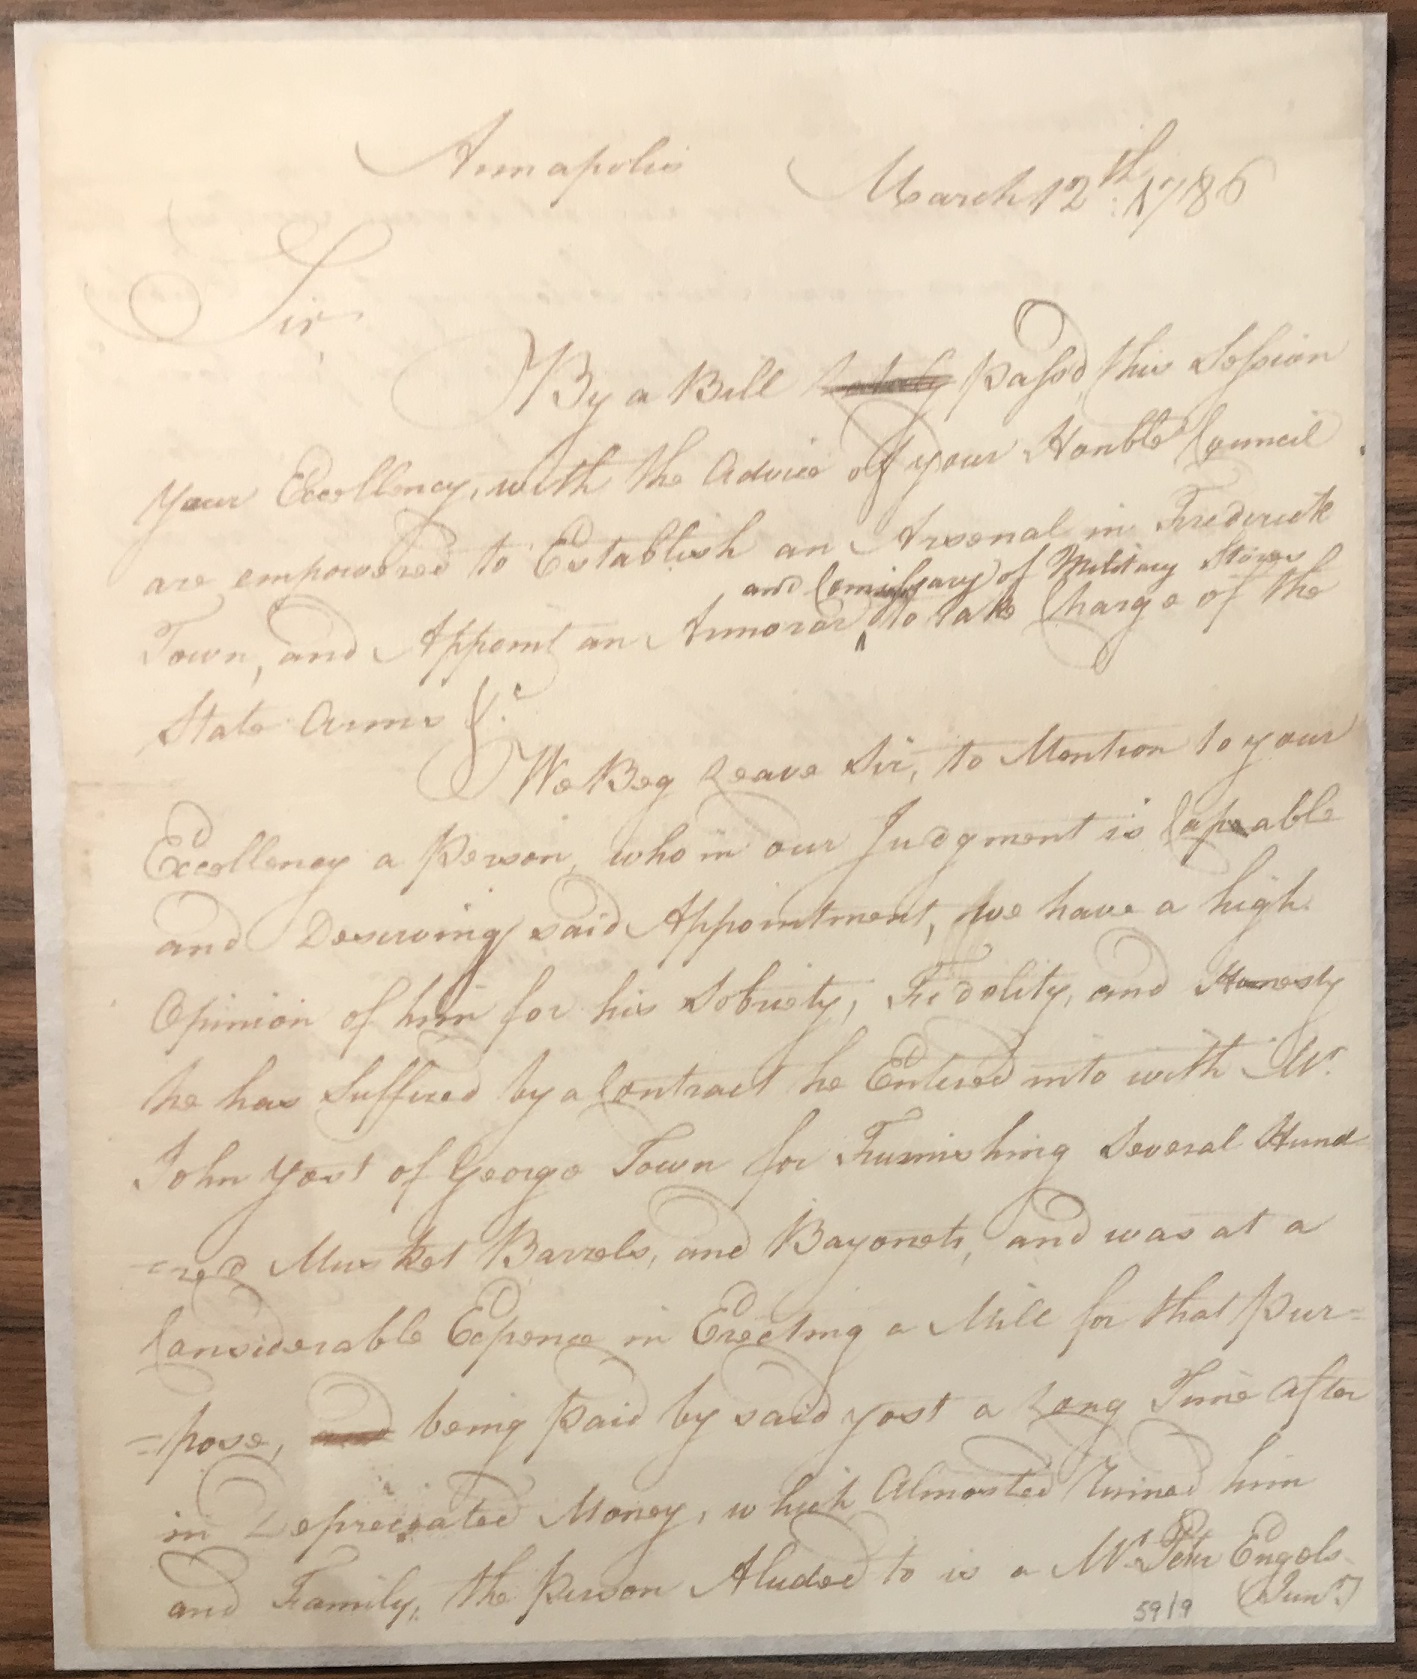 Annapolis March 12th. 1786
Sir,
By a Bill passd, this Session
your Excellency, with the Advice of your Honble Council
are empowered to Establish an Arsenal in Frederick
and Comissary of Military Stores
Town, and Appoint an Armorar ^ to take Charge of the
State Arms &c.
We Beg Leave Sir, to Mention to your
Excellency a Person, who in our Judgment is Capable
and Deserving said Appointment, we have a high
Opinion of him for his Sobriety, Fidelity, and Honesty
he has Suffered by a Contract he Entered into with Mr.
John Yost of George Town for Furnishing Several Hund
=red Musket Barrels, and Bayonets, and was at a
Considerable Expence in Erecting a Mill for that Pur=
=pose, and being paid by said Yost a Long Time After
in Depreciated Money, which Almosted Ruined him
and Family, the Person Aluded to is a Mr. Peter Engels
59/9 (Junr.)